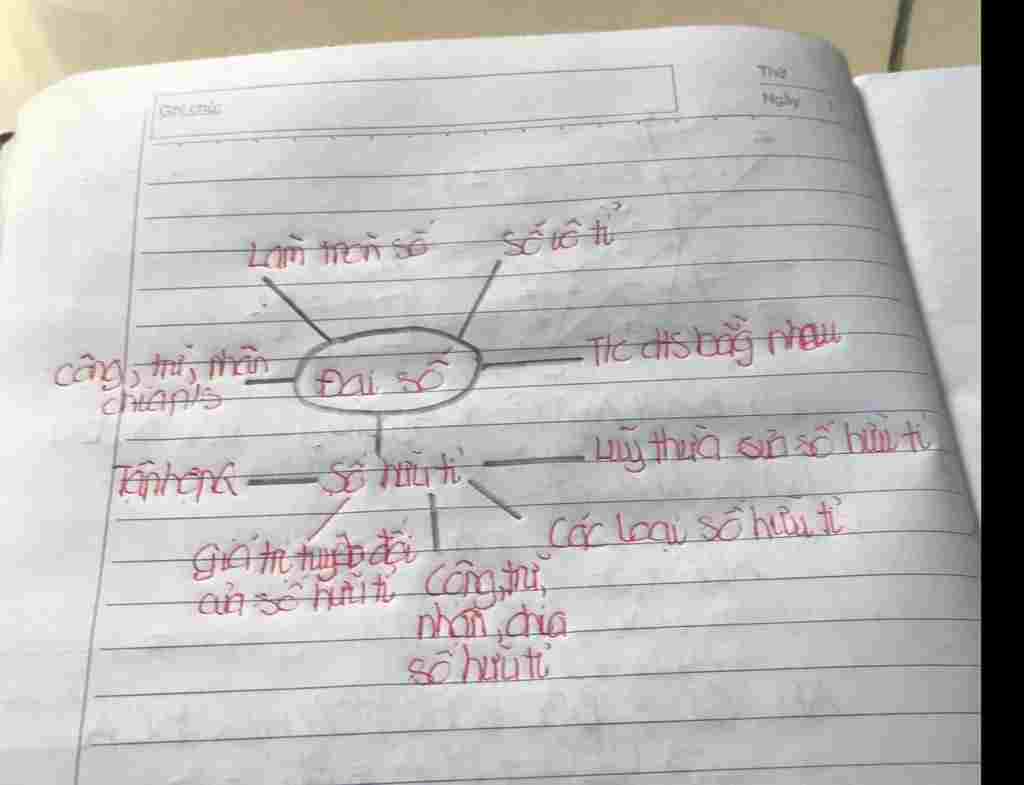 Ghi chú:
Thứ
Ngày
Làm tròn số
số vô tỉ
T/c dts bằg nhau
Cộng, trừ, nhân
chia p/s
Đại số
Số hữu tỉ
Luỹ thừa của số hữu tỉ
Các loại số hữu tỉ
giá trị tuyệt đối
của số hữu tỉ
Cộng, trừ,
nhân, chia
số hữu tỉ